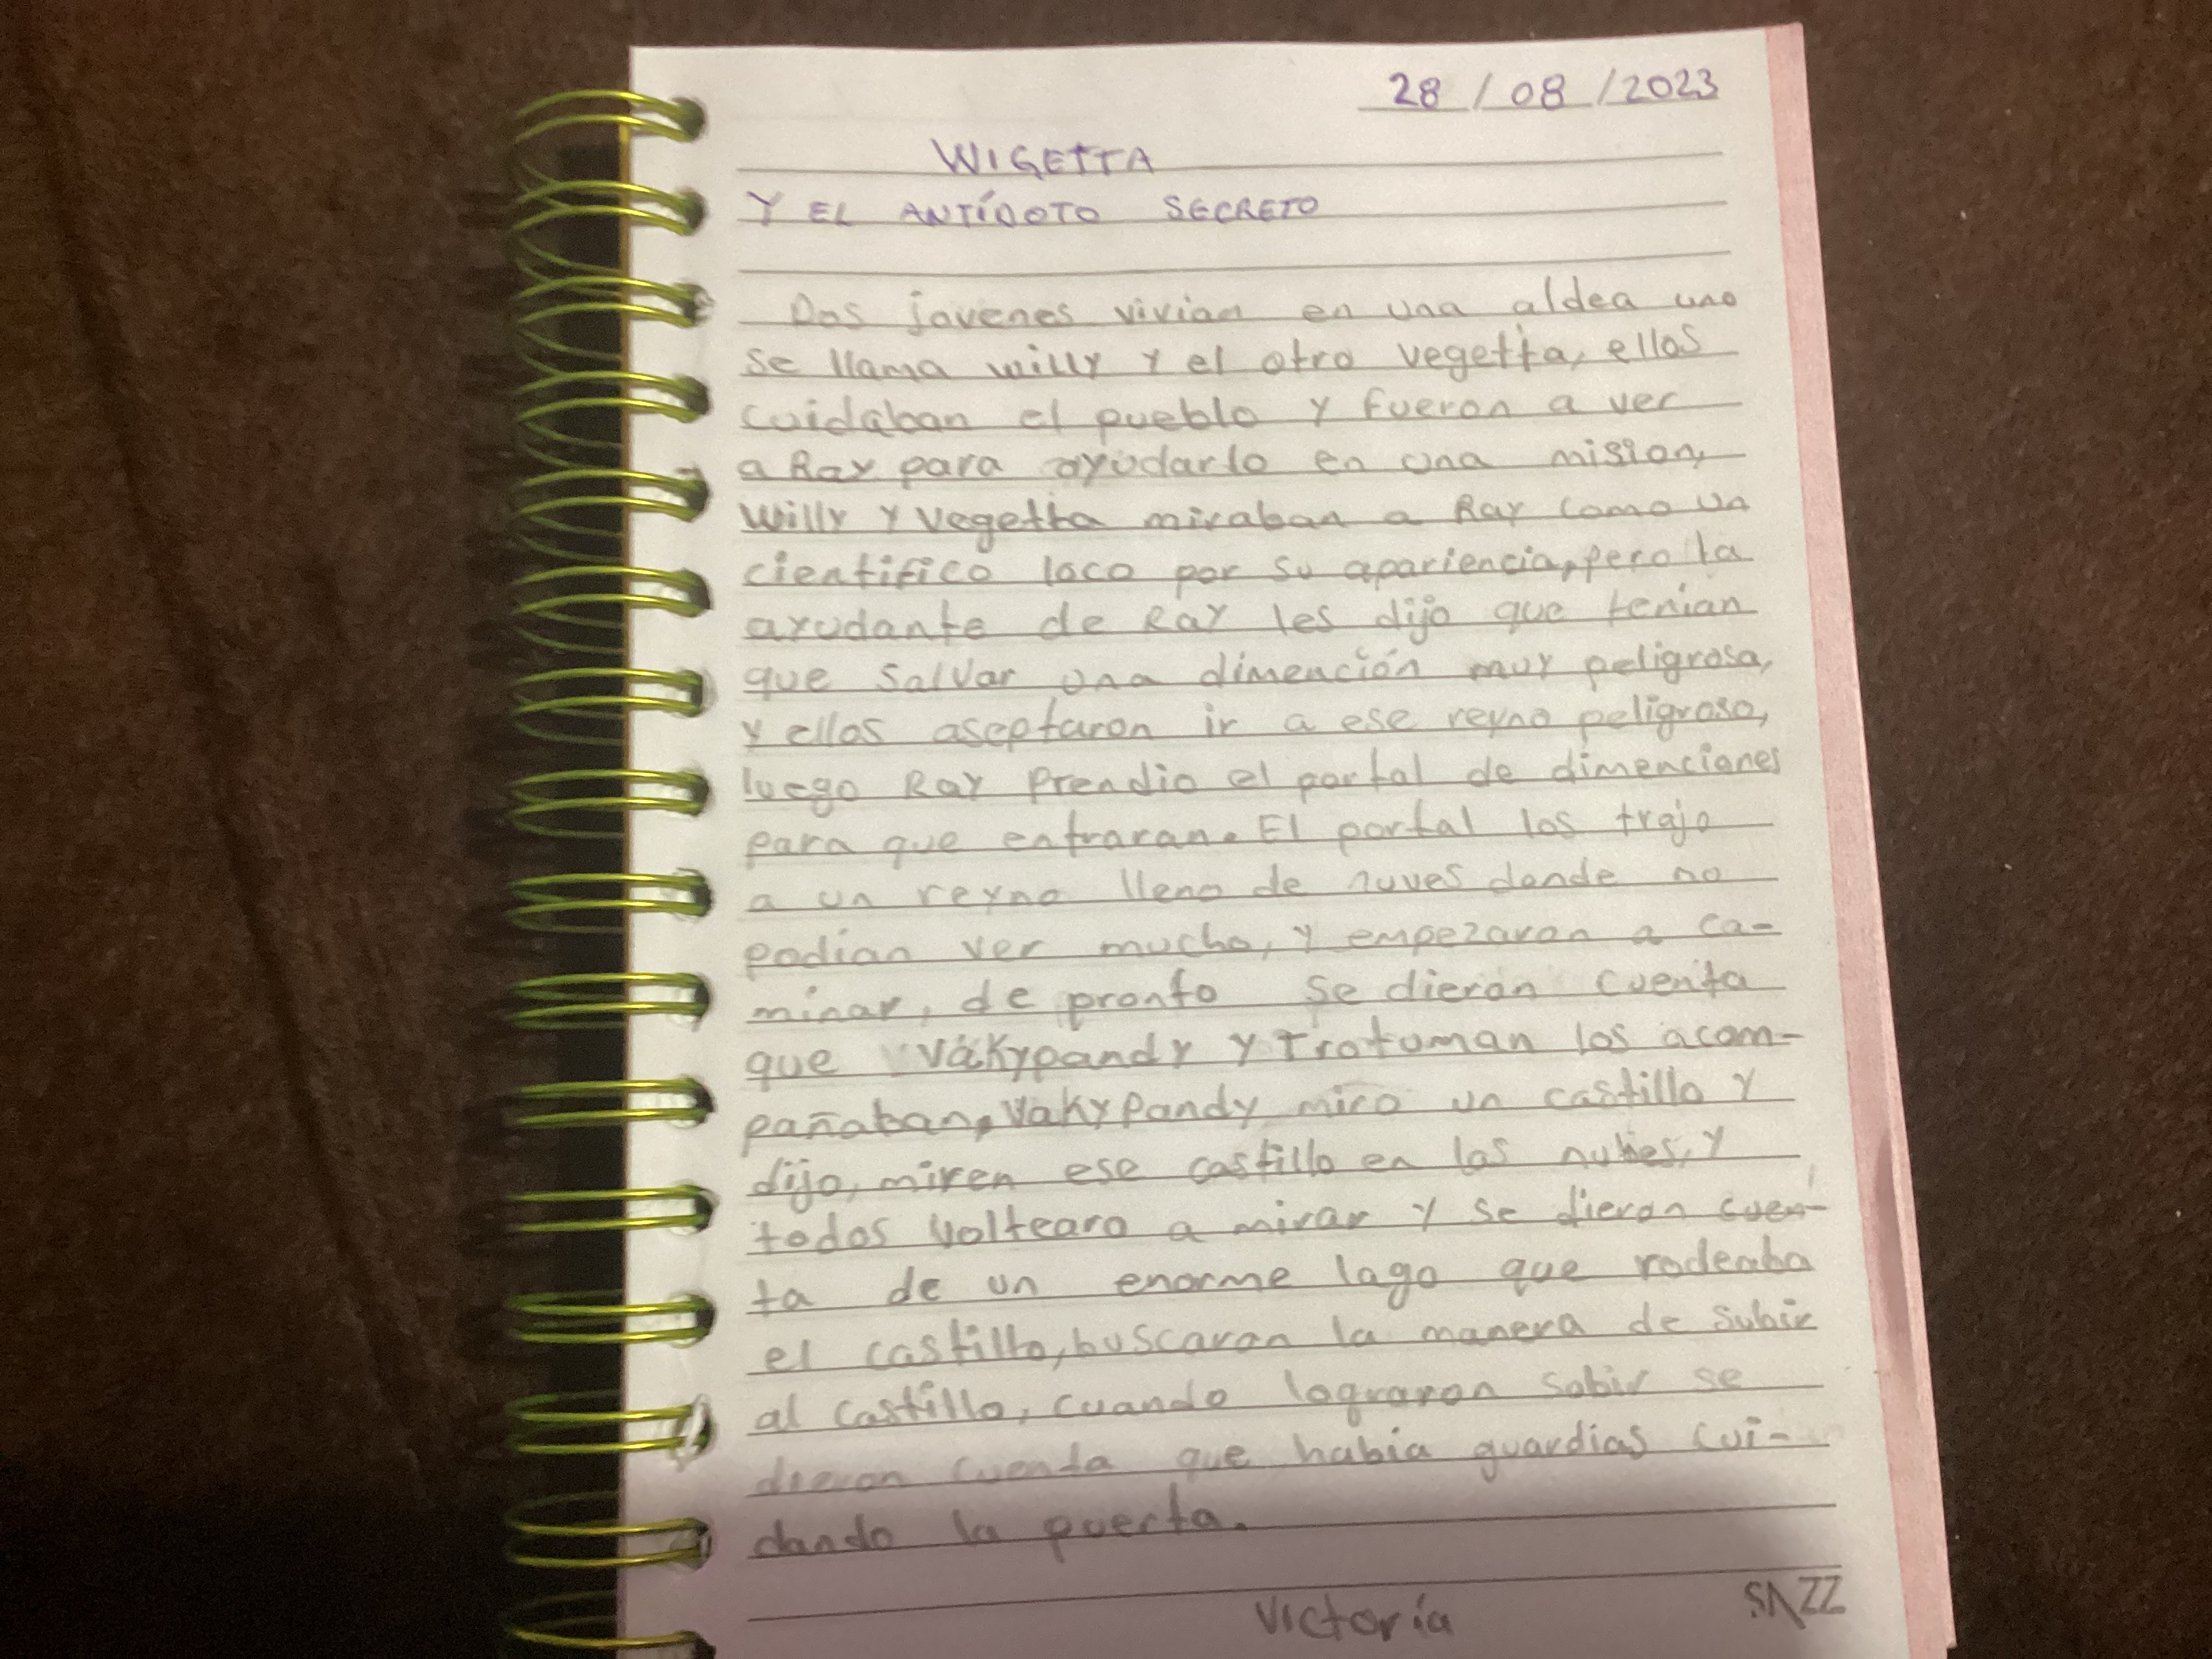 28 / 08 / 2023
WIGETTA
Y EL ANTÍDOTO SECRETO
Dos jovenes vivian en una aldea uno
se llama willy y el otro vegetta, ellos
cuidaban el pueblo y fueron a ver
a Ray para ayudarlo en una mision,
Willy y Vegetta miraban a Ray como un
cientifico loco por su apariencia, pero la
ayudante de Ray les dijo que tenian
que salvar una dimención muy peligrosa,
y ellos aseptaron ir a ese reyno peligroso,
luego Ray Prendio el portal de dimenciones
para que entraran. El portal los trajo
a un reyno lleno de nuves donde no
podian ver mucho, y empezaron a ca-
minar, de pronto se dieron cuenta
que Vakypandy y Trotuman los acom-
pañaban, Vakypandy miro un castillo y
dijo, miren ese castillo en las nubes, y
todos voltearo a mirar y se dieron cuen-
ta de un enorme lago que rodeaba
el castillo, buscaron la manera de subir
al castillo, cuando lograron subir se
dieron cuenta que había guardias cui-
dando la puerta.
Victoría